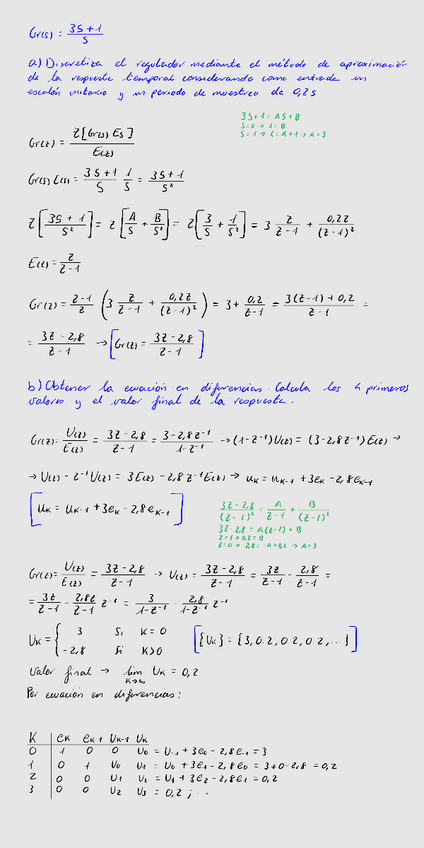 Gr(s) = 3s+1 / s
a) Discretiza el regulador mediante el método de aproximación
de la respuesta temporal considerando como entrada un
escalón unitario y un periodo de muestreo de 0,2s
3s+1 = As+B
s=0 → 1=B
Gr(z) = Z[Gr(s) E(s)] / E(z)
Gr(s) E(s) = 3s+1 / s · 1/s = 3s+1 / s²
Z[3s+1 / s²] = Z[A/s + B/s²] = Z[3/s + 1/s²] = 3 z/z-1 + 0,2z/(z-1)²
E(z) = z/z-1
Gr(z) = z-1/z (3 z/z-1 + 0,2z/(z-1)²) = 3 + 0,2/z-1 = 3(z-1)+0,2 / z-1 =
= 3z-2,8 / z-1 → [Gr(z) = 3z-2,8 / z-1]
b) Obtener la ecuación en diferencias. Calcula los 4 primeros
valores y el valor final de la respuesta.
Gr(z) = U(z)/E(z) = 3z-2,8 / z-1 = 3-2,8z⁻¹ / 1-z⁻¹ → (1-z⁻¹)U(z) = (3-2,8z⁻¹)E(z) →
→ U(z) - z⁻¹U(z) = 3E(z) - 2,8z⁻¹E(z) → uk = uk-1 + 3ek - 2,8ek-1
[uk = uk-1 + 3ek - 2,8ek-1]
3z-2,8 / (z-1)² = A/z-1 + B/(z-1)²
3z-2,8 = A(z-1)+B
Gr(z) = U(z)/E(z) = 3z-2,8 / z-1 → U(z) = 3z-2,8 / z-1 = 3z/z-1 - 2,8/z-1 =
= 3z/z-1 - 2,8z/z-1 z⁻¹ = 3/1-z⁻¹ - 2,8/1-z⁻¹ z⁻¹
Uk = { 3 si k=0
-2,8 si k>0
[{Uk} = {3, 0.2, 0.2, 0.2, ...}]
Valor final → lim k→∞ Uk = 0,2
Por ecuación en diferencias:
K ek ek-1 Uk-1 Uk
0 1 0 0 U0 = U-1 + 3e0 - 2,8e-1 = 3
1 0 1 U0 U1 = U0 + 3e1 - 2,8e0 = 3+0-2,8 = 0,2
2 0 0 U1 U2 = U1 + 3e2 - 2,8e1 = 0,2
3 0 0 U2 U3 = 0,2 ; ...